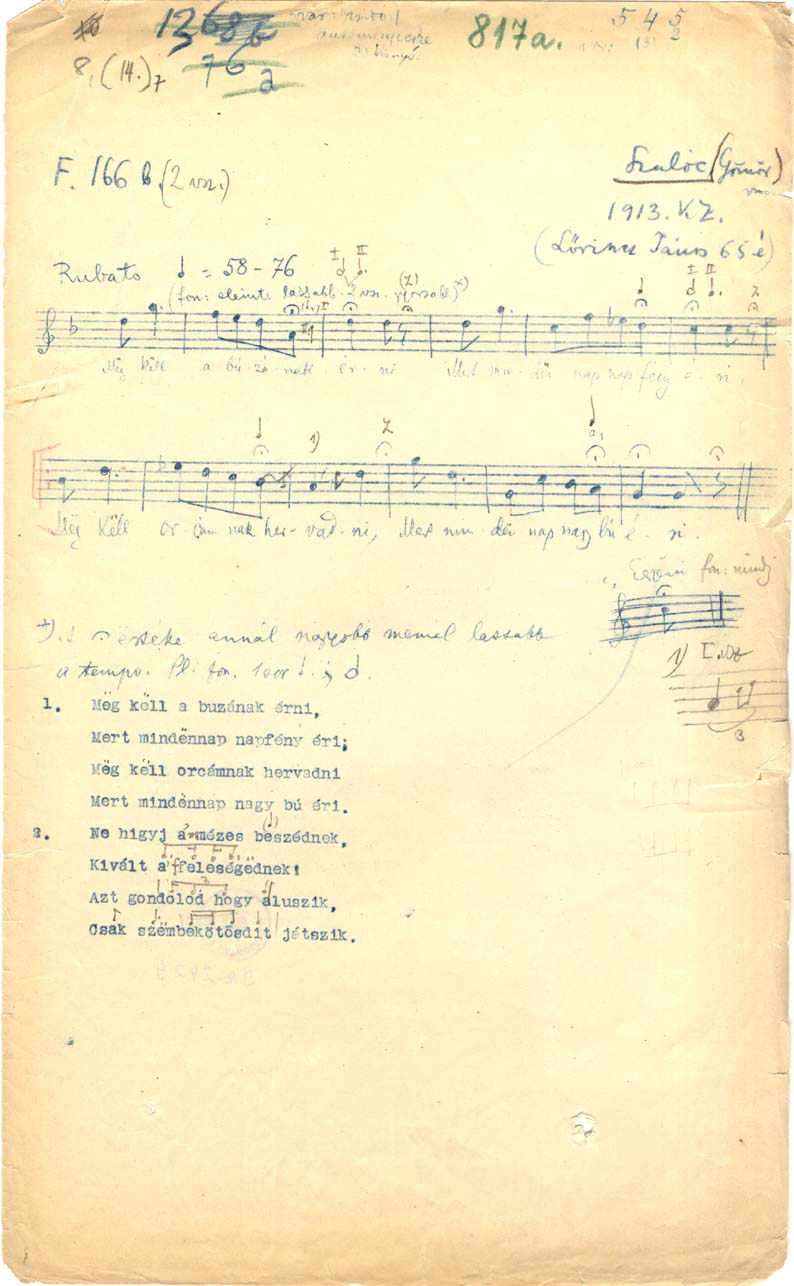 817a.
5 4 5
(3) 2
8, (14.) 7
76
a
F. 166 b. (2 vsz.)
Szalóc (Gömör)
1913. K Z.
(Lőrincz János 65 é)
Rubato ♩ = 58 - 76
(fon: eleinte lassabb. 2 vsz. gyorsabb)
Még këll a bú-zá-nak ér-ni Mert min-dën nap nap fény é-ri,
Mëg këll or-cám nak her-vad-ni, Mert min-dën nap nagy bú é-ri.
fon: mindj
értéke annál nagyobb menél lassabb
a tempo. Pl. fon. 1 sor
1) I.
3
1. Mëg këll a buzának érni,
Mert mindënnap napfény éri;
Mëg këll orcámnak hervadni
Mert mindënnap nagy bú éri.
2. Ne higyj a mézes beszédnek,
Kivált a feleségëdnek!
Azt gondolod hogy aluszik,
Csak szëmbekötősdit játszik.